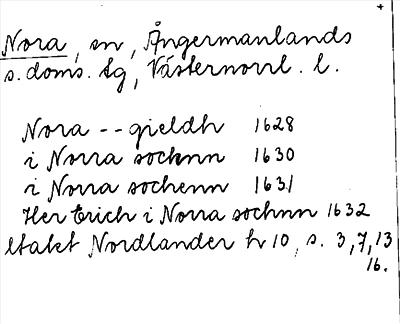 Nora, sn, Ångermanlands
s. doms. tg, Västernorrl. l.
Nora -- gieldh 1628
i Norra sochnn 1630
i Norra sochenn 1631
Her Erich i Norra sochnn 1632
Nordlander h 10, s. 3, 7, 13
16.